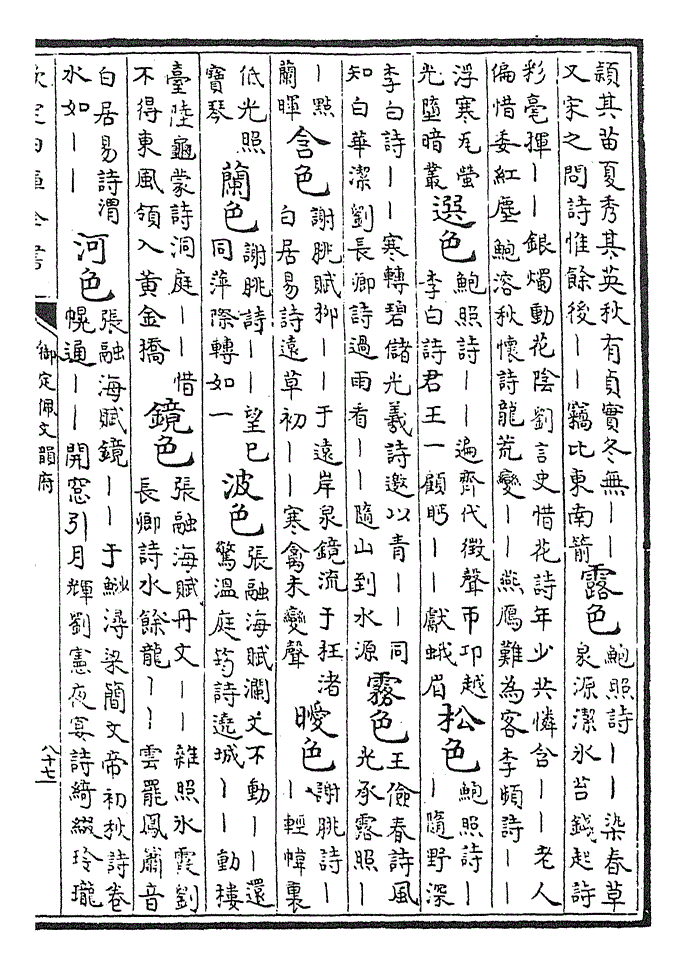 頴其苗夏秀其英秋有貞實冬無丨丨
又宋之問詩惟餘後丨丨竊比東南箭
露色
鮑照詩丨丨染春草
泉源潔氷苔錢起詩
彩毫揮丨丨銀燭動花陰劉言史惜花詩年少共憐含丨丨老人
偏惜委紅塵鮑溶秋懷詩龍荒變丨丨燕鴈難為客李頻詩丨丨
浮寒瓦螢
光墮暗叢
選色
鮑照詩丨丨遍齊代徵聲帀邛越
李白詩君王一顧眄丨丨獻蛾眉
松色
鮑照詩丨
丨隨野深
李白詩丨丨寒轉碧儲光羲詩邀以青丨丨同
知白華潔劉長卿詩過雨看丨丨隨山到水源
霧色
王儉春詩風
光承露照丨
丨點
蘭暉
含色
謝朓賦柳丨丨于遠岸泉鏡流于枉渚
白居易詩遠草初丨丨寒禽未變聲
曖色
謝朓詩丨
丨輕幃裏
低光照
寶琴
蘭色
謝朓詩丨丨望已
同萍際轉如一
波色
張融海賦瀾文不動丨丨還
驚溫庭筠詩遶城丨丨動樓
臺陸龜蒙詩洞庭丨丨惜
不得東風領入黃金
鏡色
張融海賦丹文丨丨雜照氷霞劉
長卿詩水餘龍丨丨雲罷鳳簫音
白居易詩渭
水如丨丨
河色
張融海賦鏡丨丨于潯梁簡文帝初秋詩卷
幌通丨丨開窓引月輝劉憲夜宴詩綺綴玲瓏
欽定四庫全書
御定佩文韻府
八十七